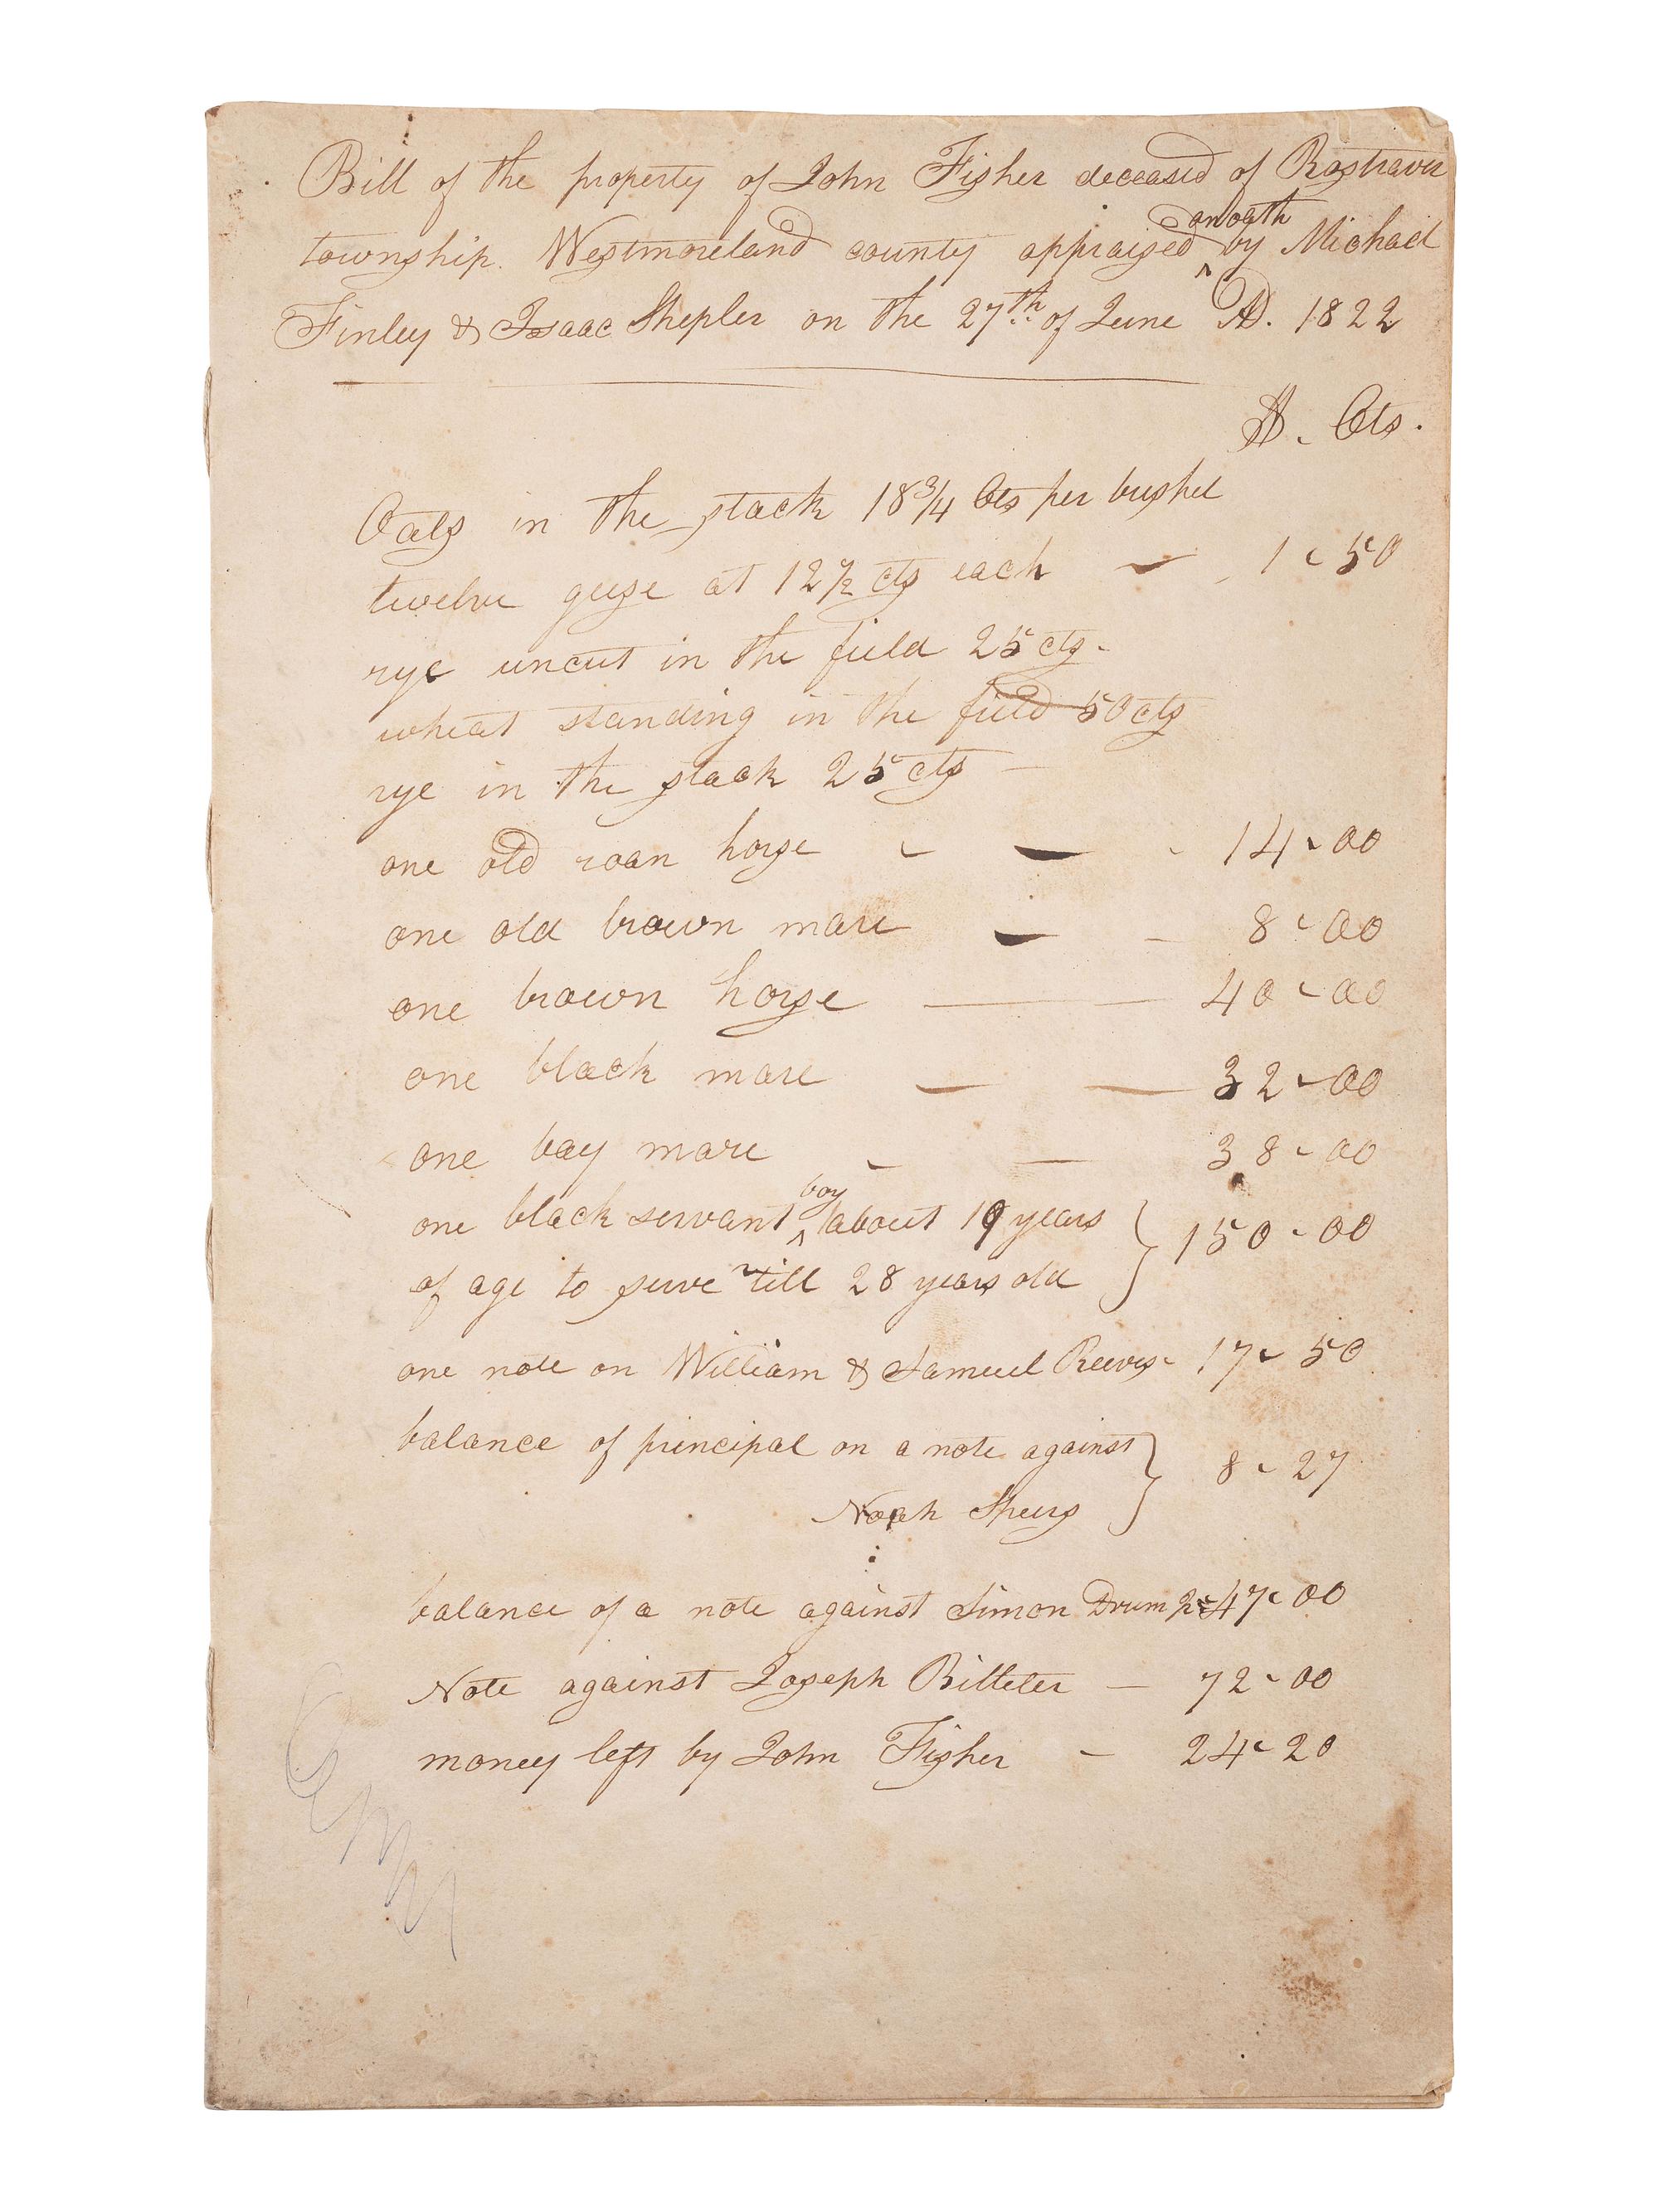 Bill of the property of John Fisher deceased of Rostraver
township. Westmoreland county appraised ^on oath by Michael
Finley & Isaac Shepler on the 27th of June AD. 1822
D. Cts.
Oats in the stack 18 3/4 Cts per bushel
twelve geese at 12 1/2 cts each - 1-50
rye uncut in the field 25 cts-
wheat standing in the field 50 cts
rye in the stack 25 cts -
one old roan horse - - - 14-00
one old brown mare - - 8-00
one brown horse - - 40-00
one black mare - - 32-00
one bay mare - - 38-00
one black servant ^boy about 19 years
of age to serve till 28 years old } 150-00
one note on William & Samuel Reeves- 17-50
balance of principal on a note against
Noah Speers } 8-27
balance of a note against Simon Drum 47-00
Note against Joseph Bitteler - 72-00
money left by John Fisher - 24-20